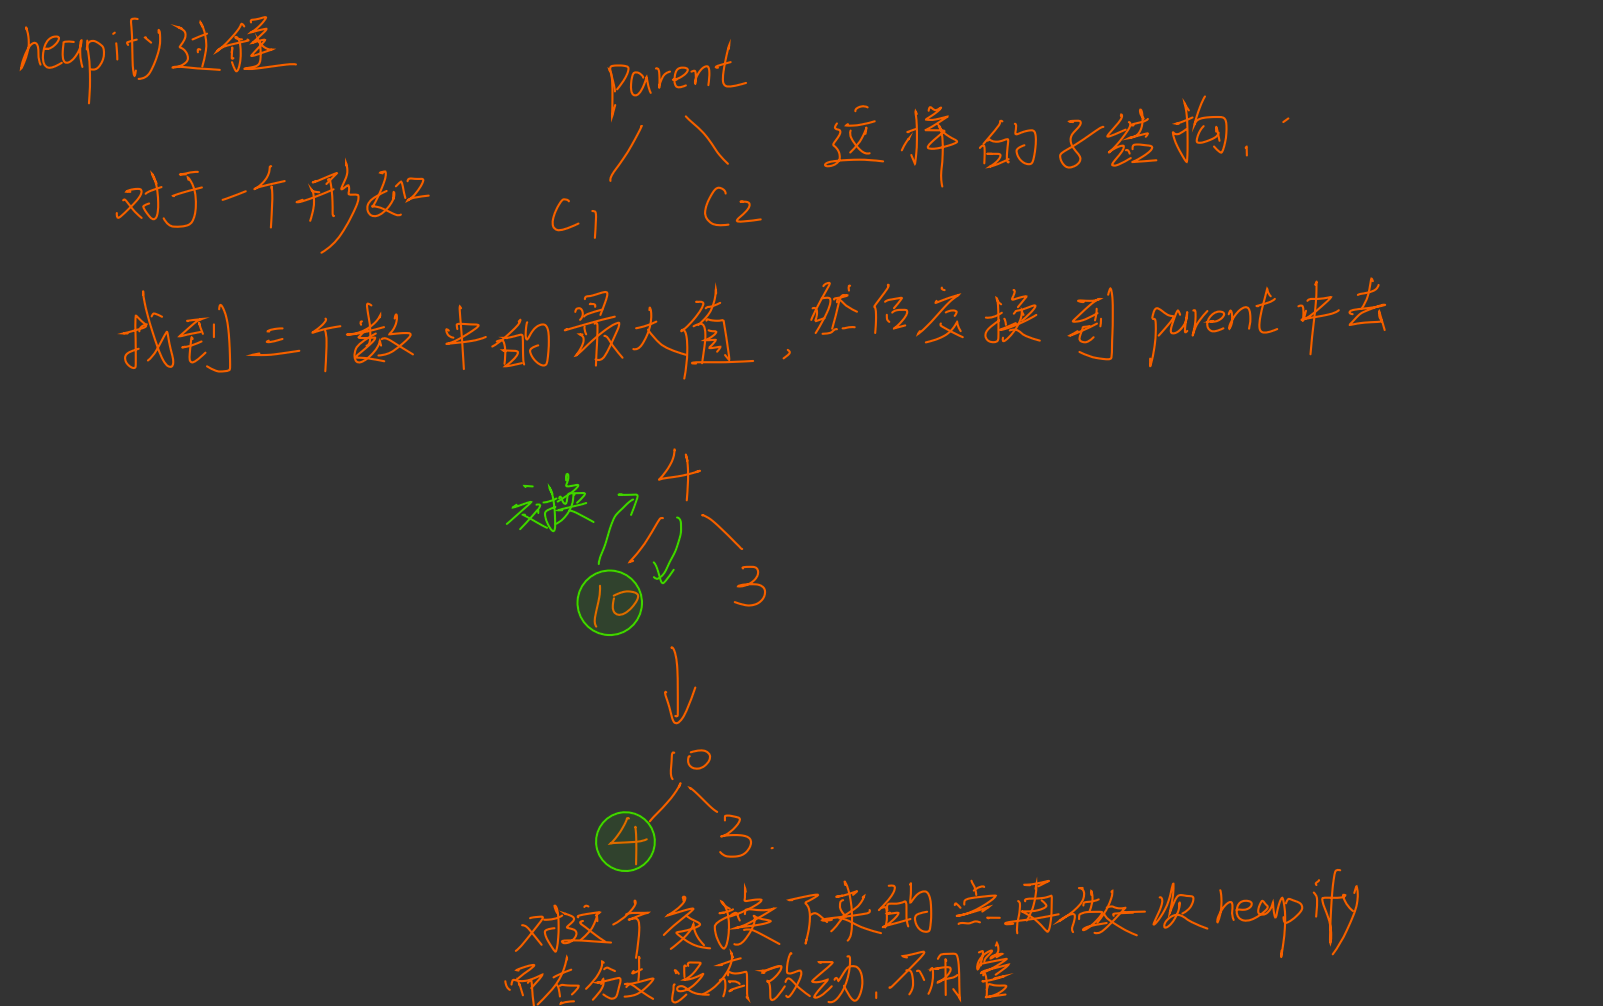 heapify过程
parent
对于一个形如
C1 C2
这样的子结构.
找到三个数中的最大值, 然后交换到parent中去
4
交换
10 3
10
4 3.
对这个交换下来的点再做一次heapify
而右分支没有改动, 不用管